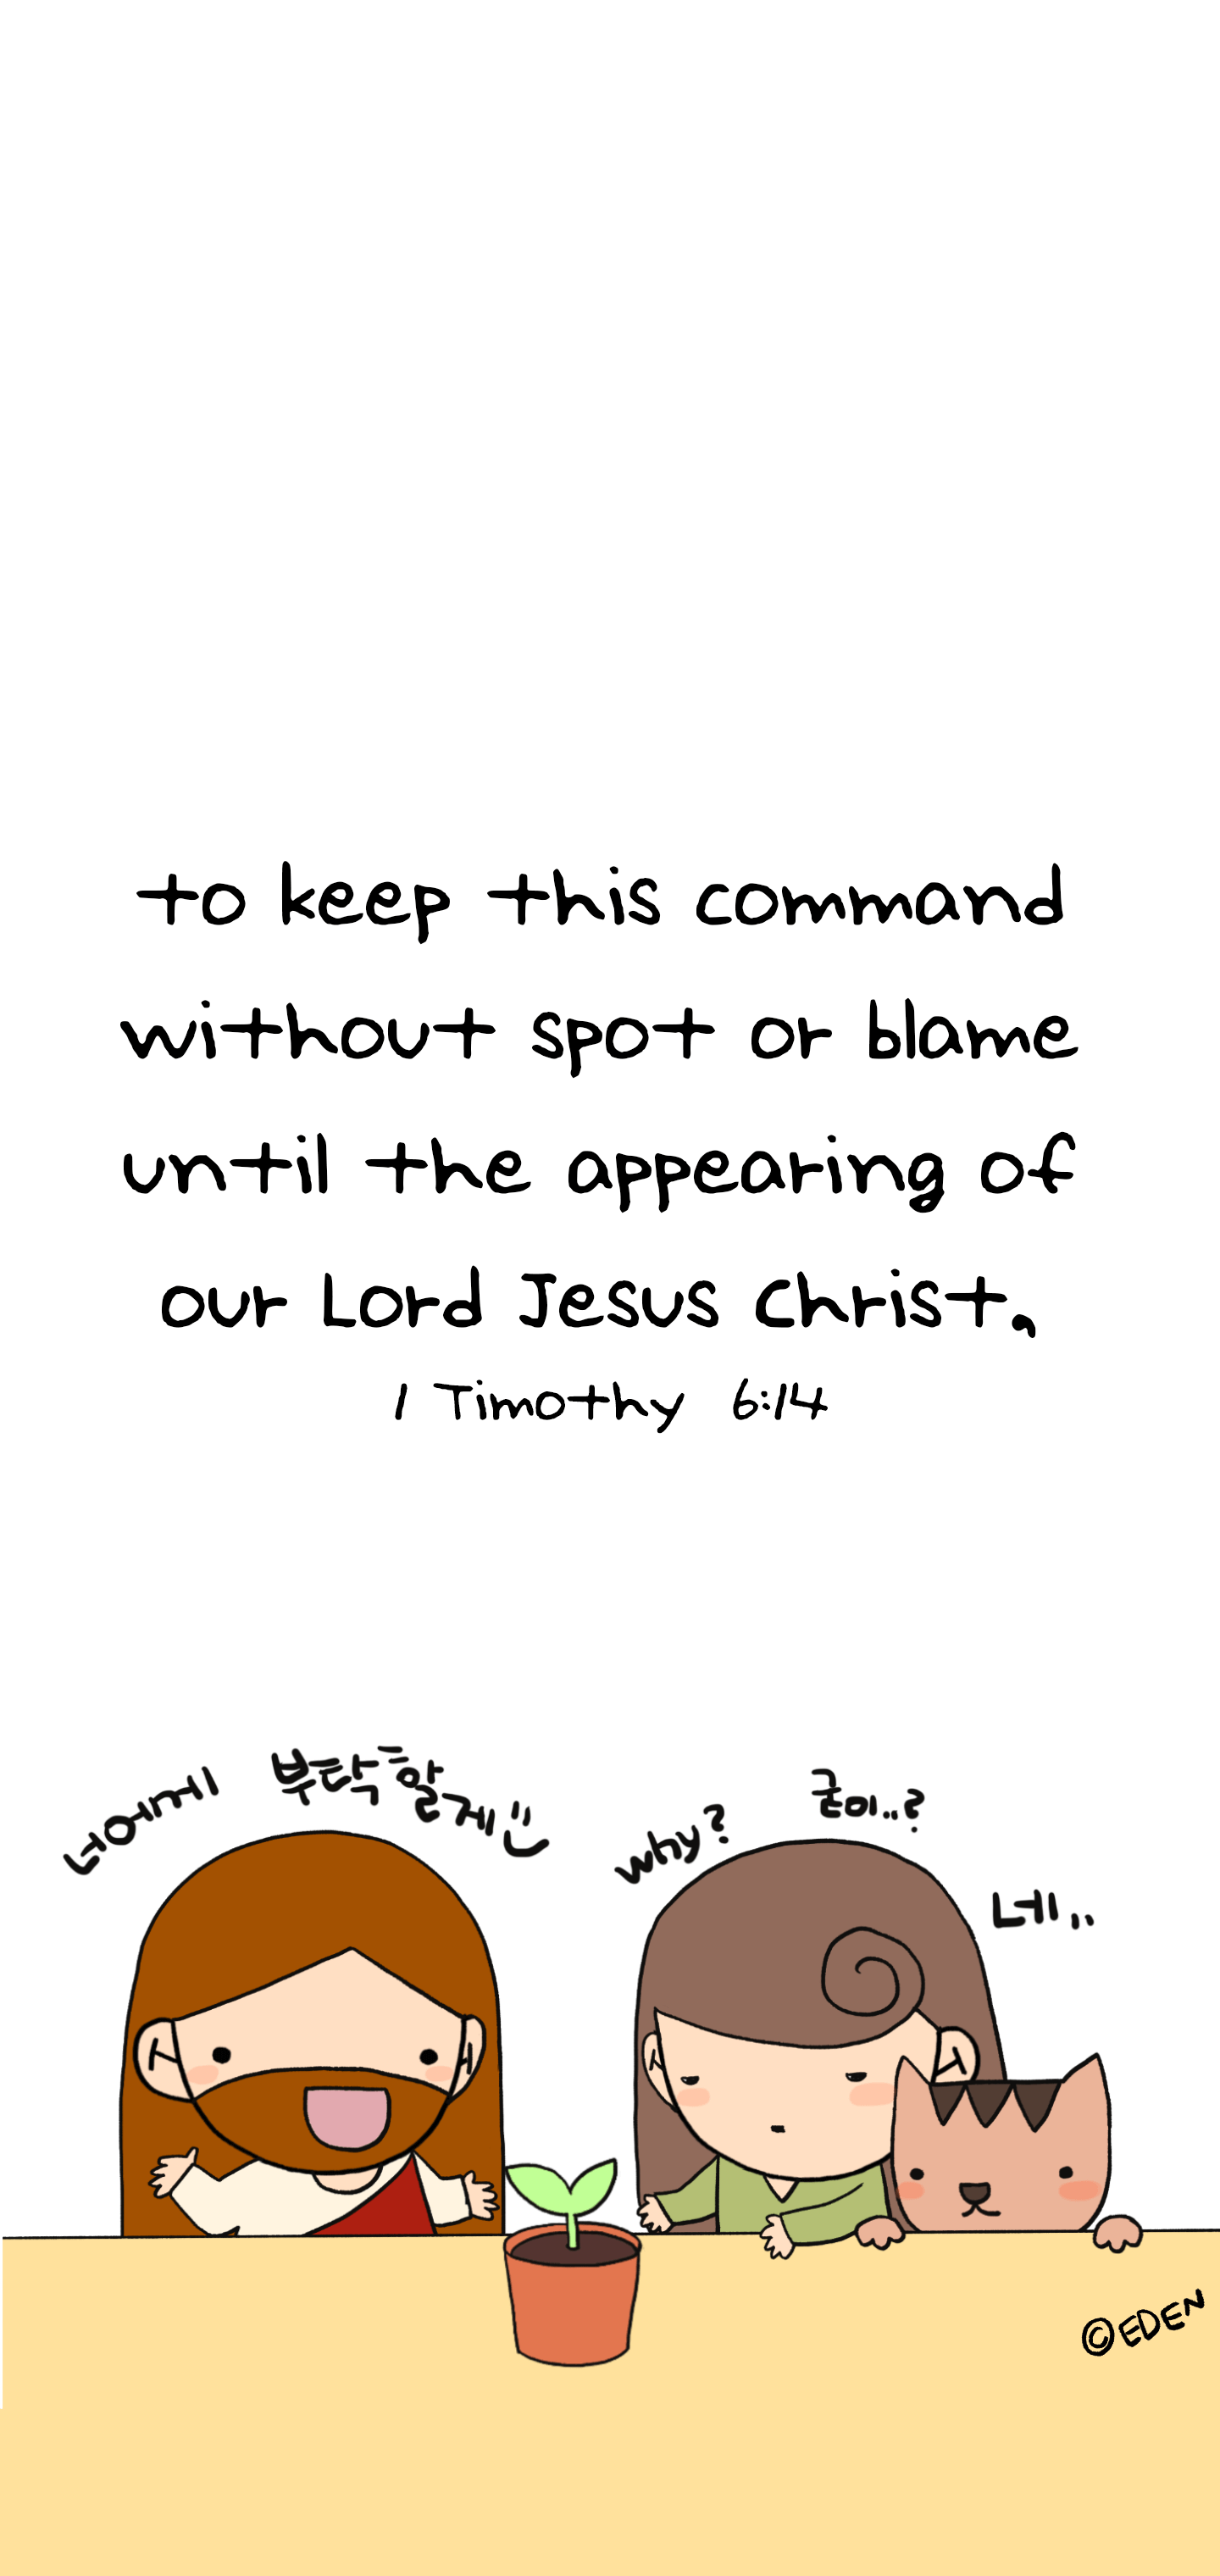 to keep this command
without spot or blame
until the appearing of
our Lord Jesus Christ,
1 Timothy 6:14
너에게 부탁할게
why? 굳이..?
네..
©EDEN